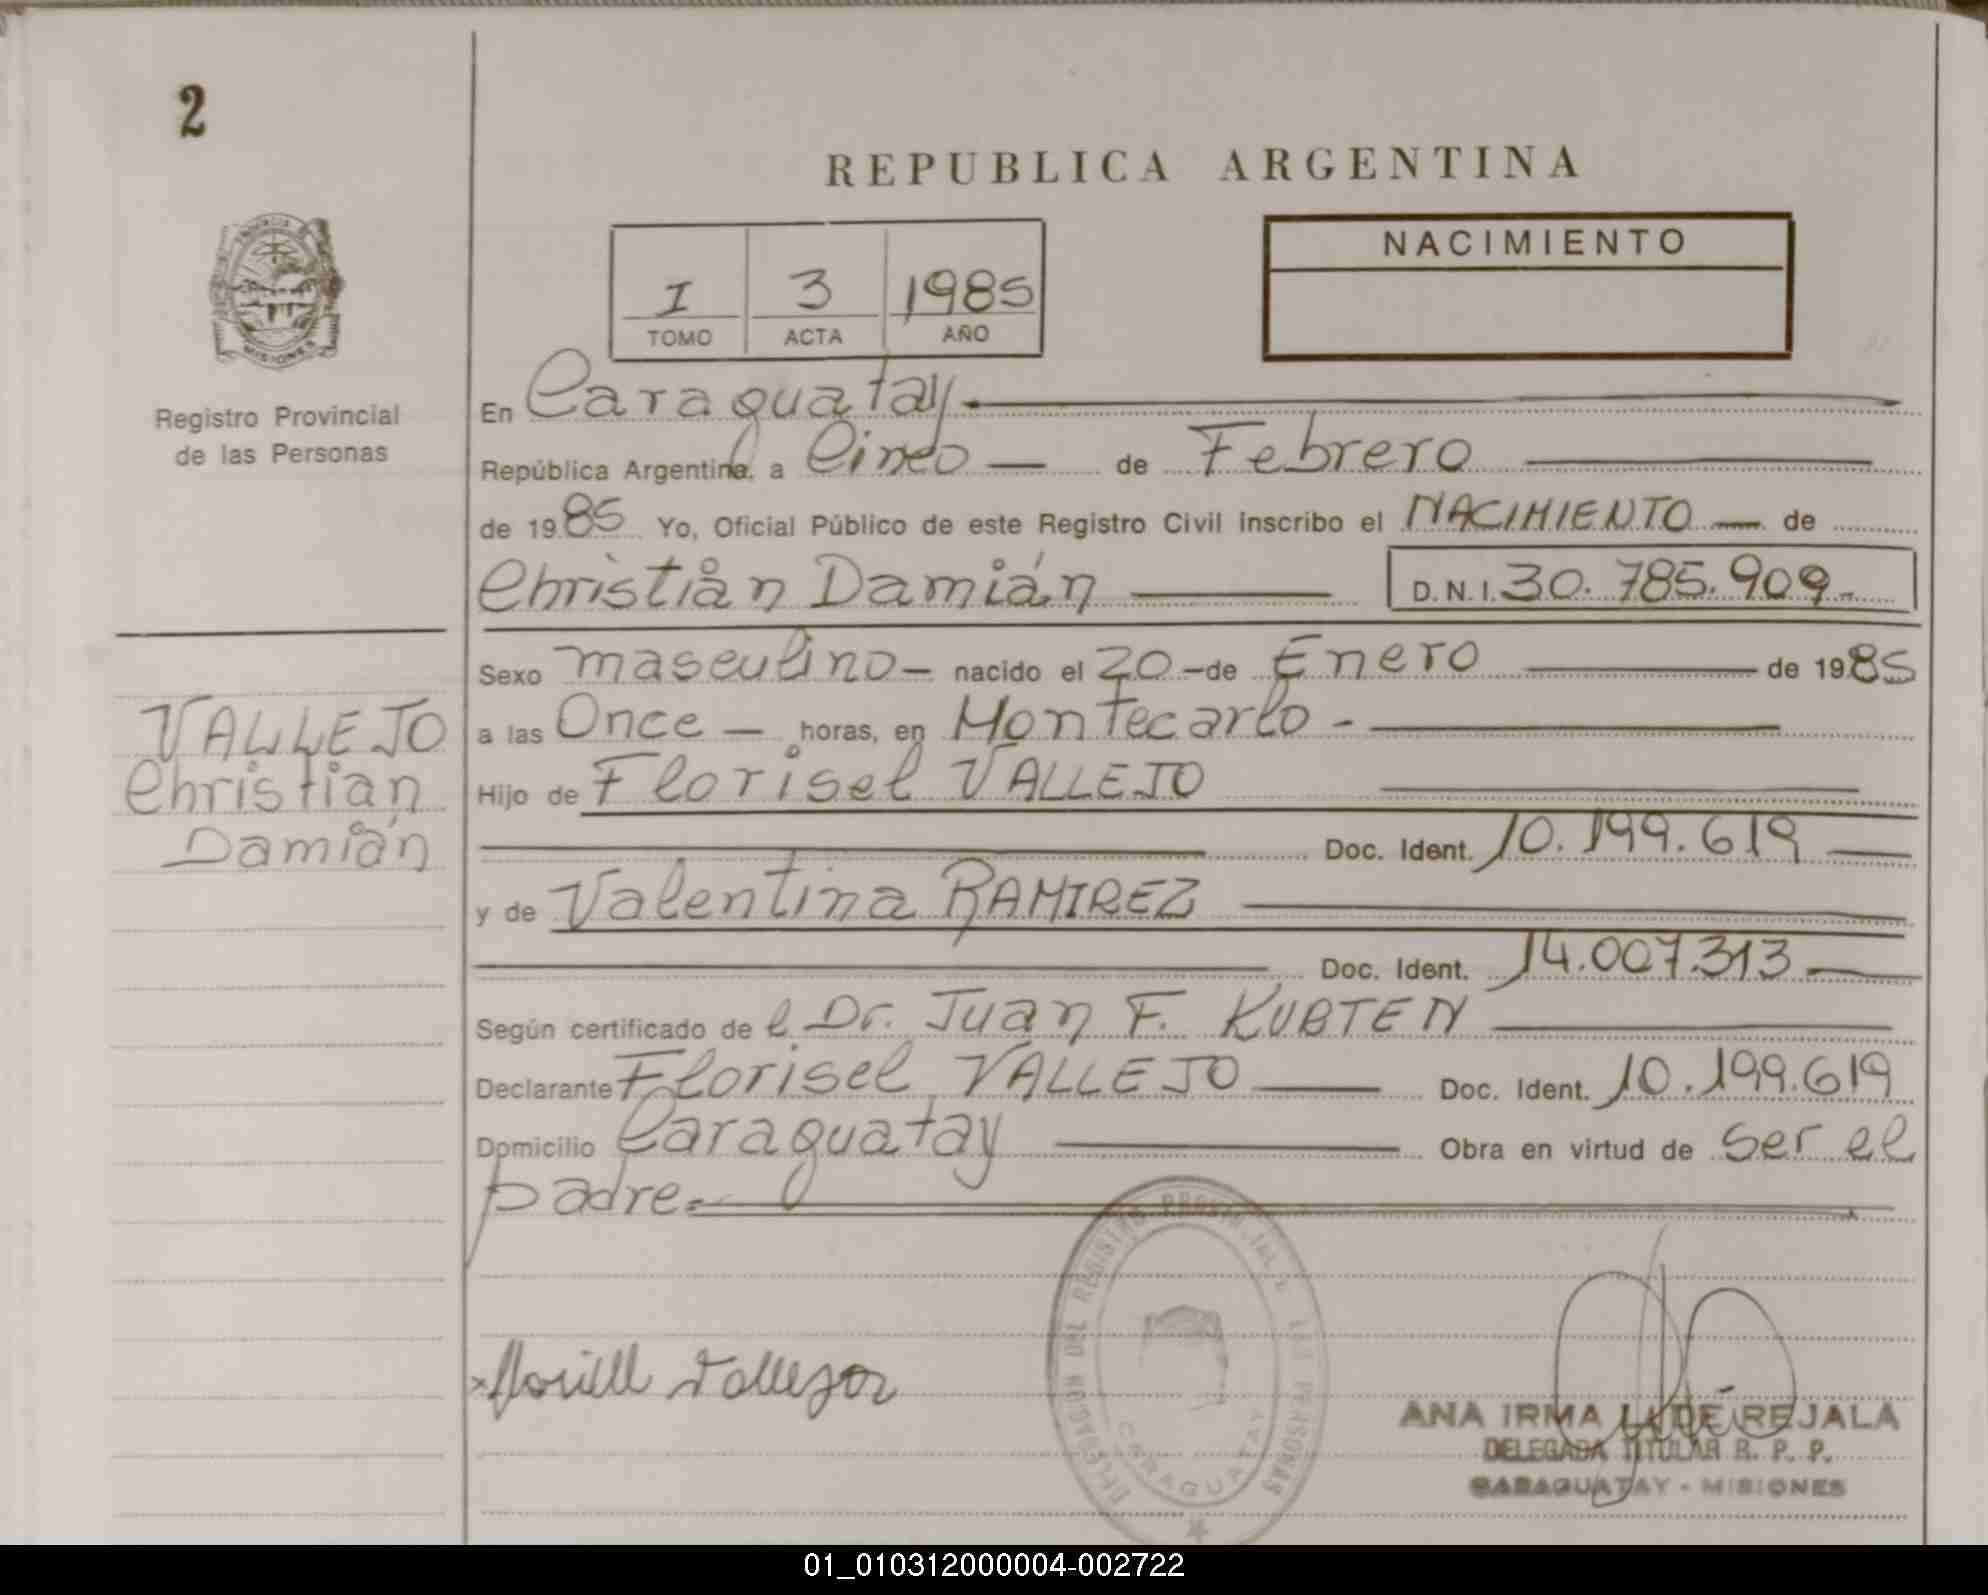 2
REPUBLICA ARGENTINA
NACIMIENTO
I 3 1985
TOMO ACTA AÑO
PROVINCIA DE
MISIONES
Registro Provincial
de las Personas
En Caraguatay
República Argentina, a Cinco de Febrero
de 1985 Yo, Oficial Público de este Registro Civil inscribo el NACIMIENTO de
Christian Damián D.N.I. 30.785.909.-
Sexo masculino - nacido el 20 - de Enero de 1985
VALLEJO
Christian
Damián
a las Once - horas, en Montecarlo -
Hijo de Florisel VALLEJO
Doc. Ident. 10.199.619
y de Valentina RAMIREZ
Doc. Ident. 14.007.313
Según certificado de l Dr. Juan F. KUBTEN
Declarante Florisel VALLEJO Doc. Ident. 10.199.619
Domicilio Caraguatay Obra en virtud de ser el
padre.=
DEL REGISTRO PROVINCIAL LAS PERSONAS
CARAGUATAY
ANA IRMA DE REJALA
DELEGADA TITULAR R. P. P.
CARAGUATAY - MISIONES
01_010312000004-002722